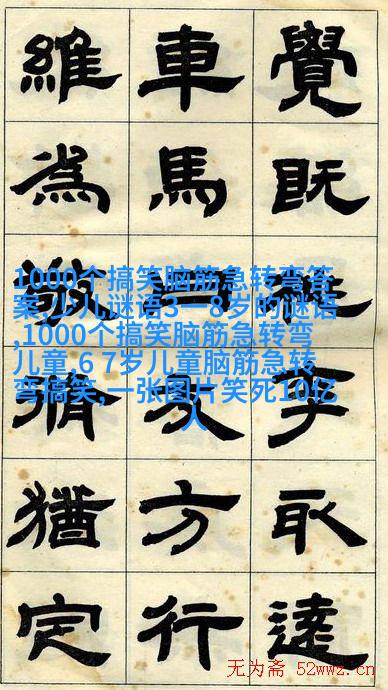 覺既取達
車馬方行
維為猶定
1000个搞笑脑筋急转弯答
案,少儿谜语3一8岁的谜语
,1000个搞笑脑筋急转弯
儿童,6 7岁儿童脑筋急转
弯搞笑,一张图片笑死10亿
人
无为斋 52wwz.cn